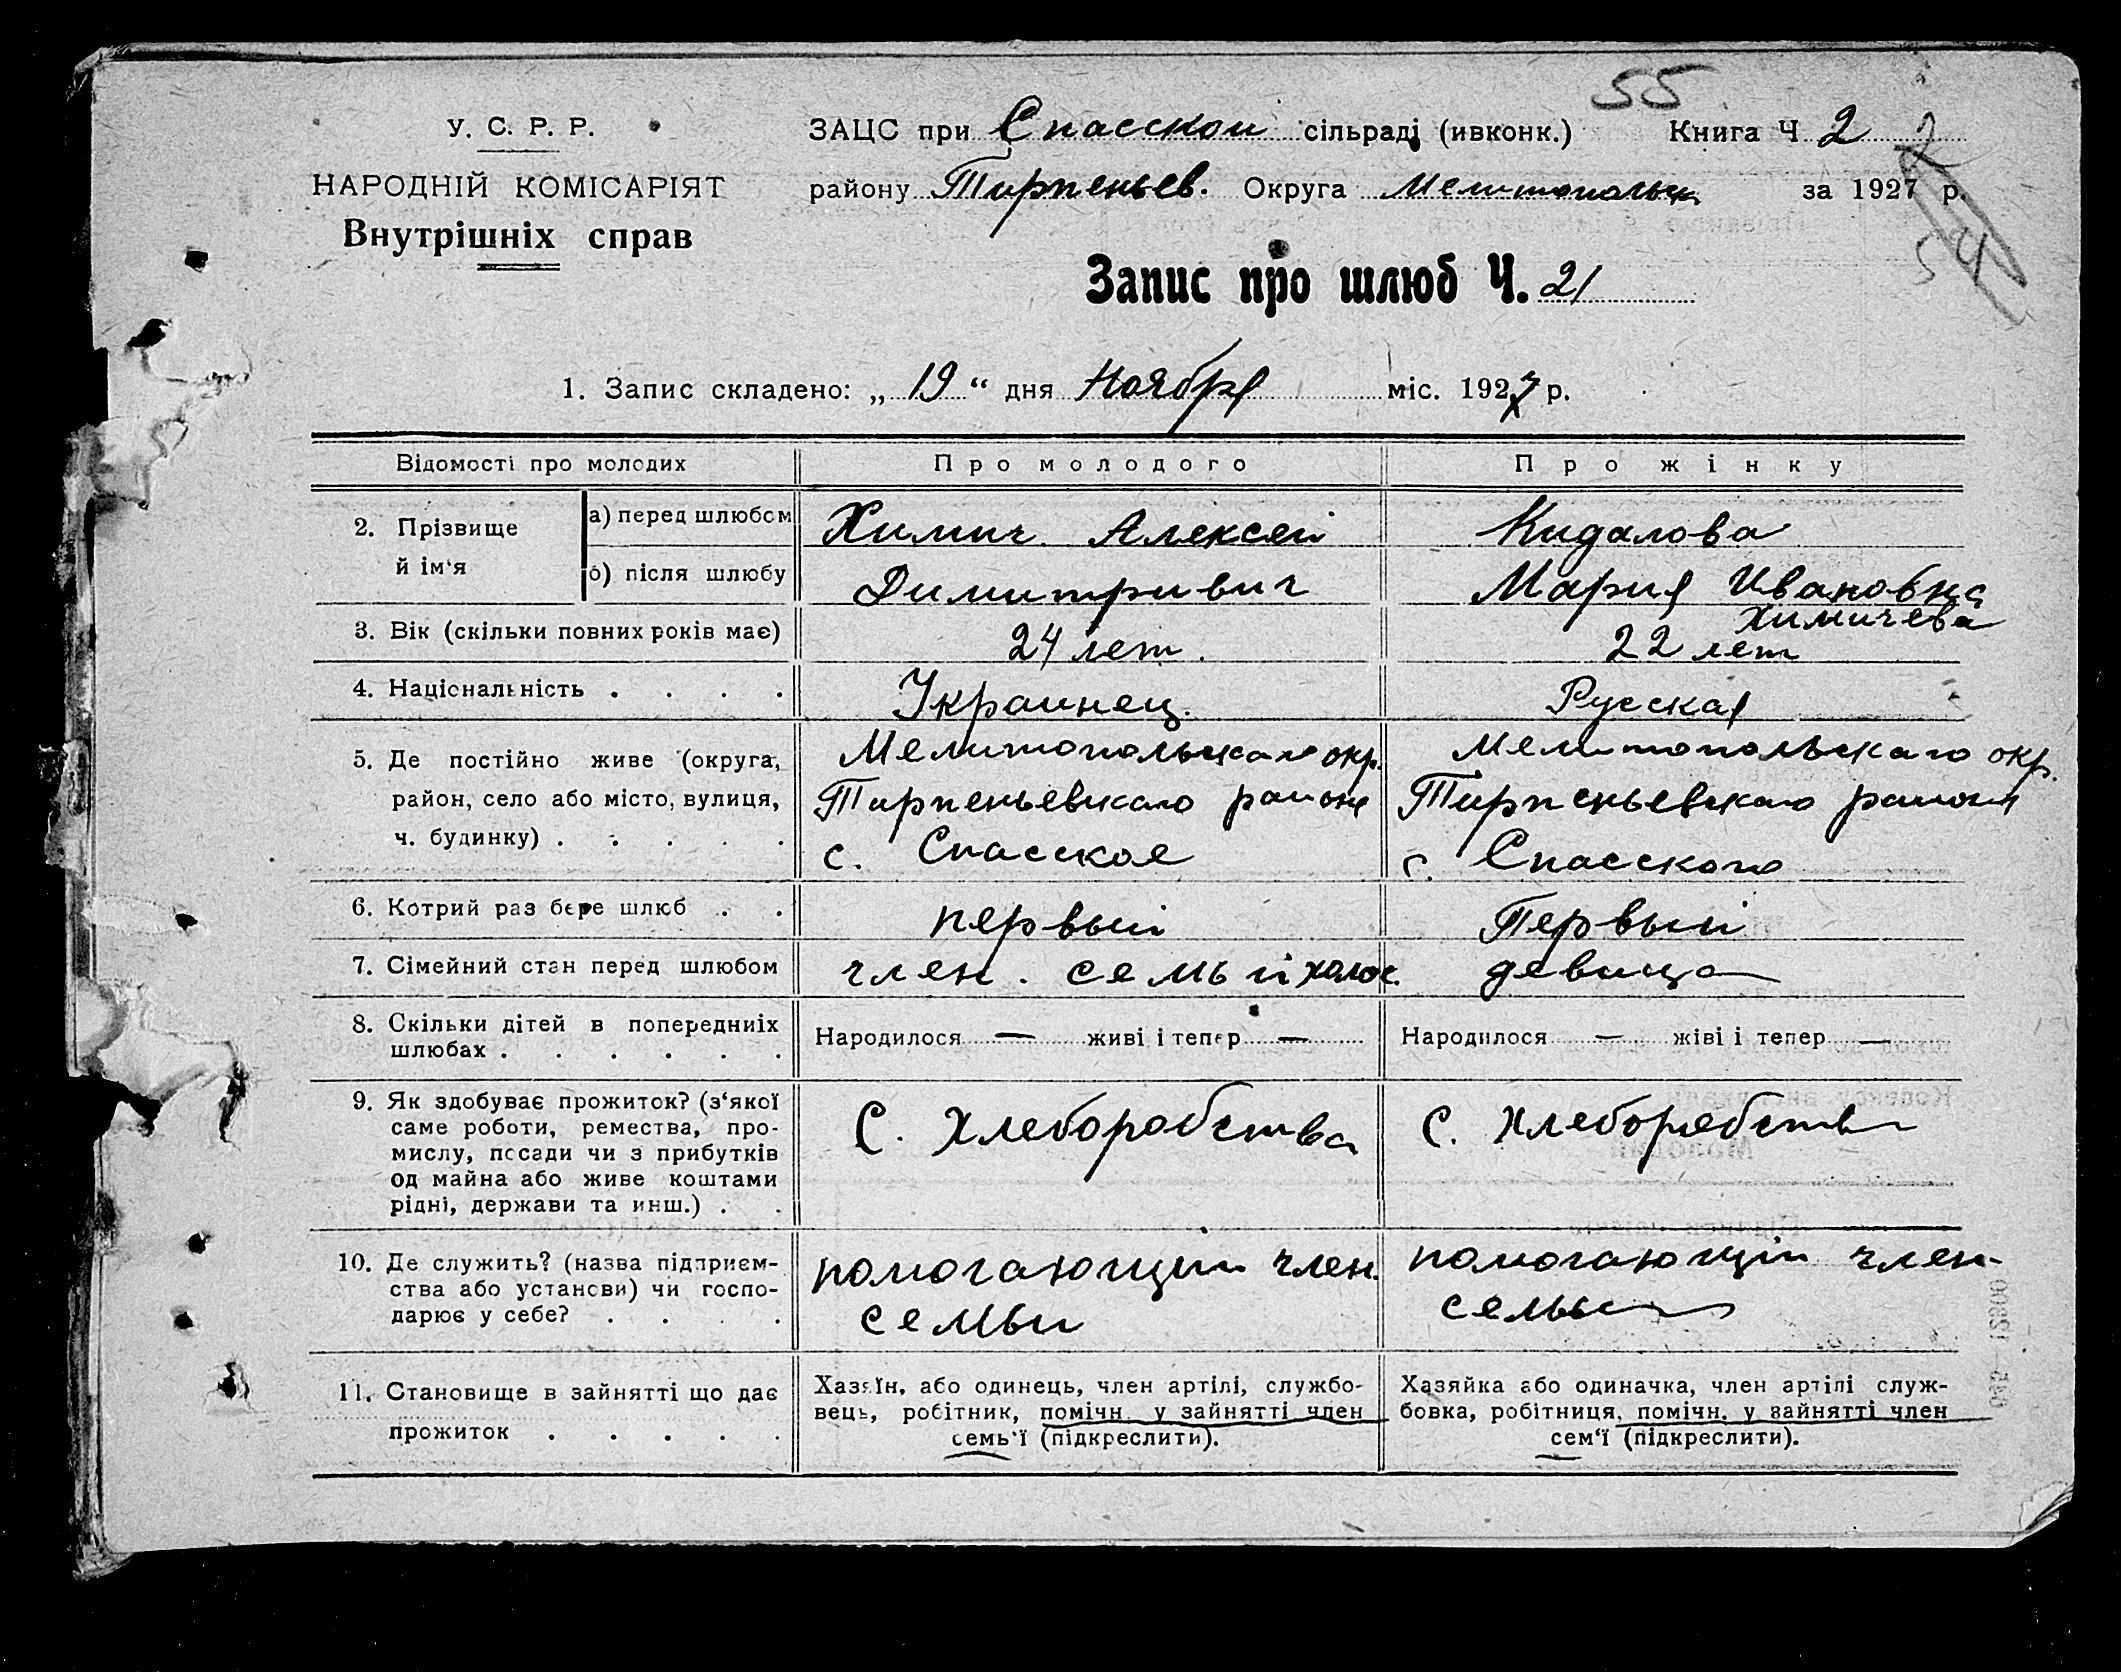 55
У. С. Р. Р.
НАРОДНІЙ КОМІСАРІЯТ
Внутрішніх справ
ЗАЦС при Спасской сільраді (ивконк.) Книга Ч 2 2
району Тирпеньев. Округа Мелитопольск за 1927 р.
54
Запис про шлюб Ч. 21
1. Запис складено: „ 19 “ дня Ноября міс. 1927 р.
Відомості про молодих Про молодого Про жінку
2. Прізвище й ім‘я
а) перед шлюбом
б) після шлюбу
Химич Алексей
Димитривич
Кидалова
Мария Ивановна
Химичева
3. Вік (скільки повних років має) 24 лет. 22 лет
4. Національність . . . . Украинец. Русская
5. Де постійно живе (округа,
район, село або місто, вулиця,
ч. будинку) . . . . .
Мелитопольскаго окр.
Тирпеньевскаго района
с. Спасское
Мелитопольскаго окр.
Тирпеньевскаго района
с. Спасского
6. Котрий раз бере шлюб . . первый Первый
7. Сімейний стан перед шлюбом член. семьи холос. девица
8. Скільки дітей в попередниіх
шлюбах . . . . . .
Народилося — живі і тепер —
Народилося — жіві і тепер —
9. Як здобуває прожиток? (з‘якої
саме роботи, ремества, про-
мислу, посади чи з прибутків
од майна або живе коштами
рідні, держави та инш.) . .
С. Хлеборобства
С. Хлеборобства
10. Де служить? (назва підприєм-
ства або установи) чи госпо-
дарює у себе? . . . .
помогающий член.
семьи
помогающий член-
семьи
11. Становище в зайнятті що дає
прожиток . . . . .
Хазяїн, або одинець, член артілі, службо-
вець, робітник, помічн. у зайнятті член
семь‘ї (підкреслити).
Хазяйка або одиначка, член артілі служ-
бовка, робітниця, помічн. у зайнятті член
сем‘ї (підкреслити).